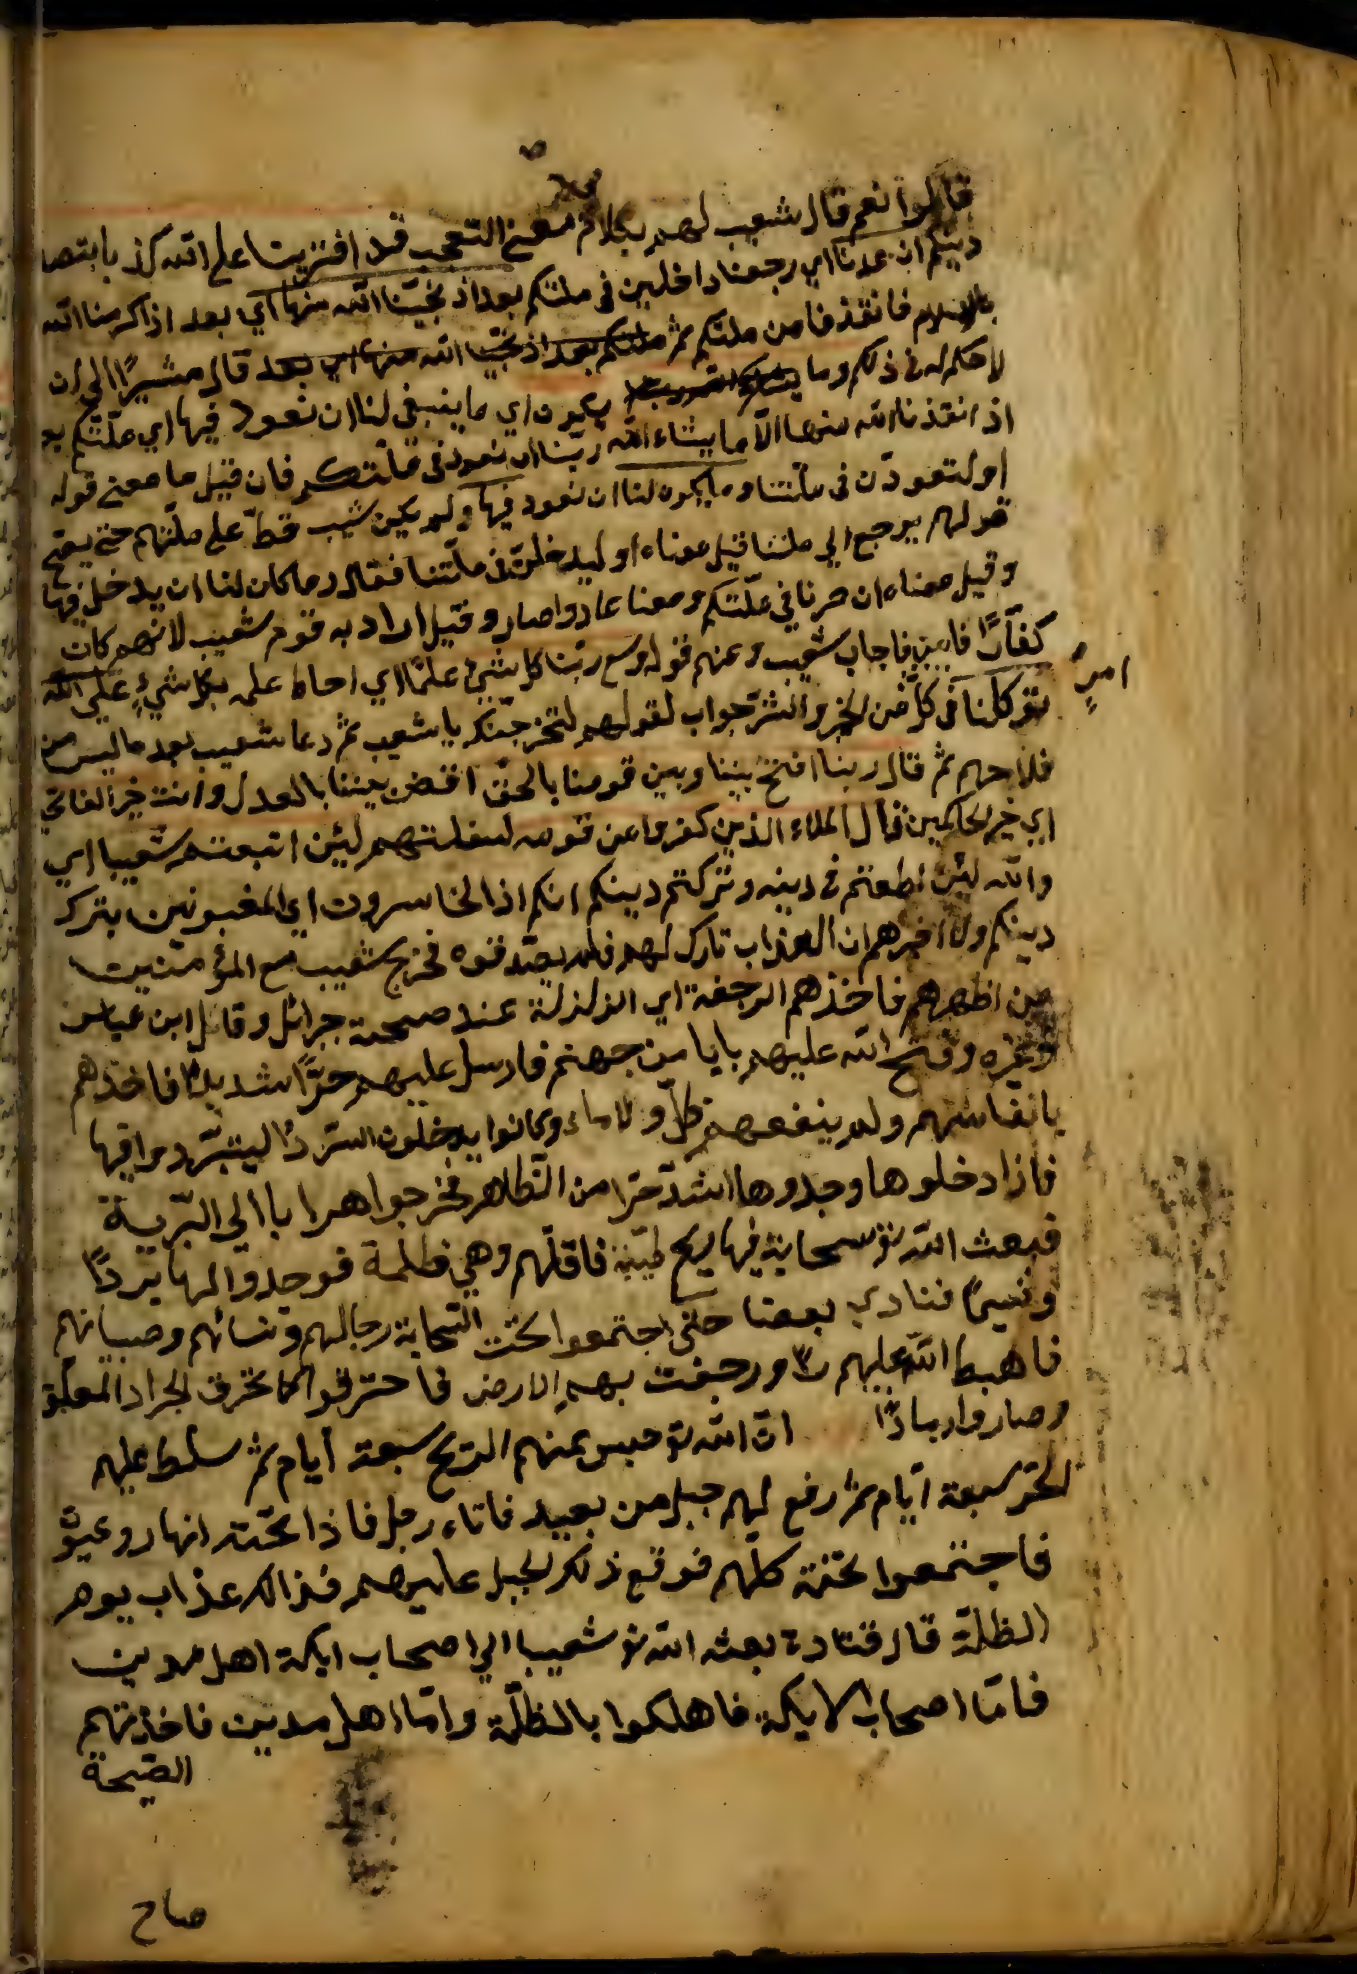 قالوا نعم قال شعيب لهم بكلام بمعنى التعجب قد افترينا على الله كذبا بانتصا
دينكم ان عدنا اي رجعنا داخلين في ملتكم بعد اذ نجينا الله منها اي بعد اذ اكرمنا الله
بالاسلام فانقذنا من ملتكم ثم ملتكم بعد اذ نجينا الله منها اي بعد قال مشيرا الى ان
لا حكم له في ذلكم وما يكون اي ما ينبغي لنا ان نعود فيها اي ملتكم بعد
اذ انقذنا الله منها الا ما يشاء الله ربنا ان نعود في ملتكم فان قيل ما معنى قوله
او لتعودن في ملتنا وما يكون لنا ان نعود فيها ولم يكن شعيب قط على ملتهم حتى يصح
قولهم يرجع الى ملتنا قيل معناه او ليدخلن في ملتنا فقال وما كان لنا ان يدخل فيها
وقيل معناه ان صرنا في ملتكم ومعنا عادوا صار وقيل اراد به قوم شعيب لانهم كان
كفارا فاجاب شعيب عنهم قوله وسع ربنا كل شيء علما اي احاط علمه بكل شيء على الله
توكلنا في كل من الخير والشر جواب لقولهم لنخرجنك يا شعيب ثم دعا شعيب بعد ما ليس من
امر
فلاحهم ثم قال ربنا افتح بيننا وبين قومنا بالحق اقض بيننا بالعدل وانت خير الفاتحي
اي خير الحاكمين قال الملاء الذين كفروا من قومه لسفلتهم لئن اتبعتم شعيبا اي
والله لئن اطعتم في دينه وتركتم دينكم انكم اذا لخاسرون اي المغبونين بترك
دينكم ولما اخبرهم ان العذاب تارك لهم فلم يصدقوه فخرج شعيب مع المؤمنين
من اظهرهم فاخذهم الرجفة اي الزلزلة عند صيحة جبرائل وقال ابن عباس
وغيره وفتح الله عليهم بابا من جهنم فارسل عليهم حرا شديدا فاخذهم
بانفاسهم ولم ينفعهم ظل ولا ماء وكانوا يدخلون السرداب ليتبردوا فيها
فاذا دخلوها وجدوها اشد حرا من الظاهر فخرجوا هرابا الى البرية
فبعث الله تع سحابة فيها ريح طيبة فاقلهم وهي ظلمة فوجدوا لها بردا
ونسيما فنادي بعضا حتى اجتمعوا تحت السحابة رجالهم ونسائهم وصبيانهم
فاهبط الله عليهم ورجفت بهم الارض فاحترقوا كما تحرق الجراد المعلق
وصاروا رمادا ان الله تع حبس عنهم الريح سبعة ايام ثم سلط عليهم
الحر سبعة ايام ثم رفع لهم جبل من بعيد فاتاه رجل فاذا تحته انهار وعيون
فاجتمعوا تحته كلهم فوقع ذلك الجبل عليهم فذالك عذاب يوم
الظلة قال قتادة بعث الله تع شعيبا الى اصحاب ايكة اهل مدين
فاما اصحاب الايكة فاهلكوا بالظلة واما اهل مدين فاخذتهم
الصيحة
صاح